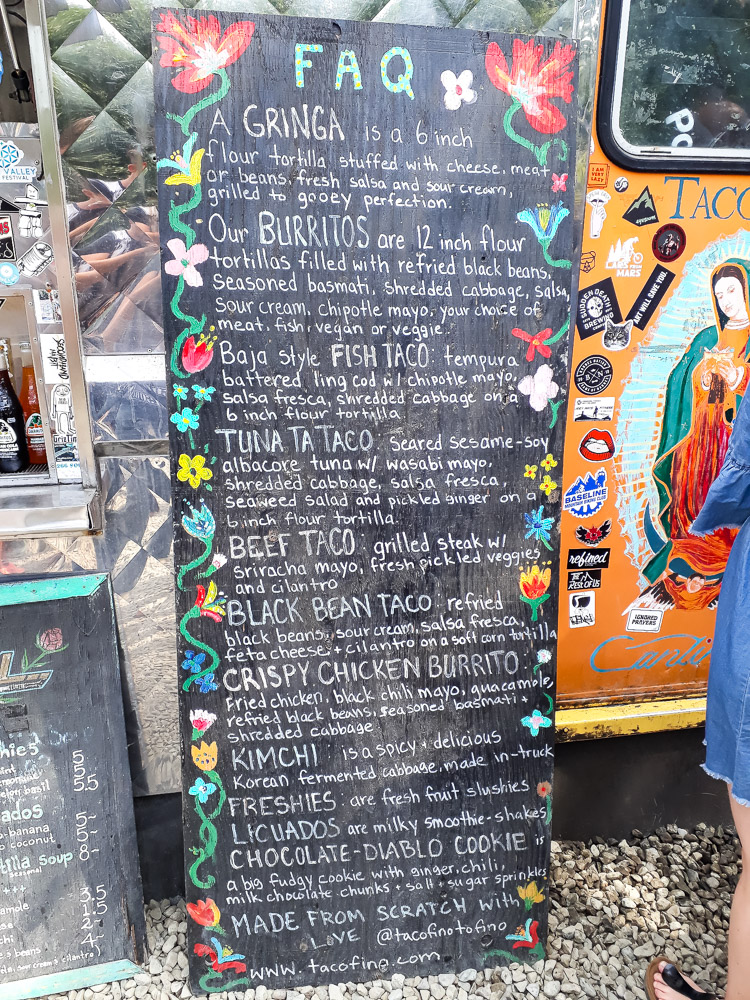 FAQ
A GRINGA is a 6 inch
flour tortilla stuffed with cheese, meat
or beans, fresh salsa and sour cream,
grilled to gooey perfection.
Our BURRITOS are 12 inch flour
tortillas filled with refried black beans,
seasoned basmati, shredded cabbage, salsa,
sour cream, chipotle mayo, your choice of
meat, fish, vegan or veggie.
Baja style FISH TACO: tempura
battered ling cod w/ chipotle mayo,
salsa fresca, shredded cabbage on a
6 inch flour tortilla.
TUNA TATACO: seared sesame-soy
albacore tuna w/ wasabi mayo,
shredded cabbage, salsa fresca,
seaweed salad and pickled ginger on a
6 inch flour tortilla.
BEEF TACO: grilled steak w/
sriracha mayo, fresh pickled veggies
and cilantro
BLACK BEAN TACO refried
black beans, sour cream, salsa fresca,
feta cheese + cilantro on a soft corn tortilla
CRISPY CHICKEN BURRITO:
Fried chicken, black chili mayo, guacamole,
refried black beans, seasoned basmati +
shredded cabbage
KIMCHI is a spicy + delicious
Korean fermented cabbage, made in-truck
FRESHIES: are fresh fruit slushies
LICUADOS are milky smoothie-shakes
CHOCOLATE-DIABLO COOKIE is
a big fudgy cookie with ginger, chili,
milk chocolate chunks + salt + sugar sprinkles
MADE FROM SCRATCH with
LOVE @tacofinotofino
www.tacofino.com
VALLEY
FESTIVAL
hies
5
5
5.5
ados
banana 5-
coconut 5-
illa Soup 8-
seasonal
+++
amole 3.5
s beans
sour cream + cilantro
TACO
I AM VERY LAZY
LABS FROM MARS
ART WILL SAVE YOU.
SUDDEN DEATH
BREWING
BASELINE
MOUNTAIN BIKING CLUB
refined
THE REST OF US
IGNORED
PRAYERS
Canti